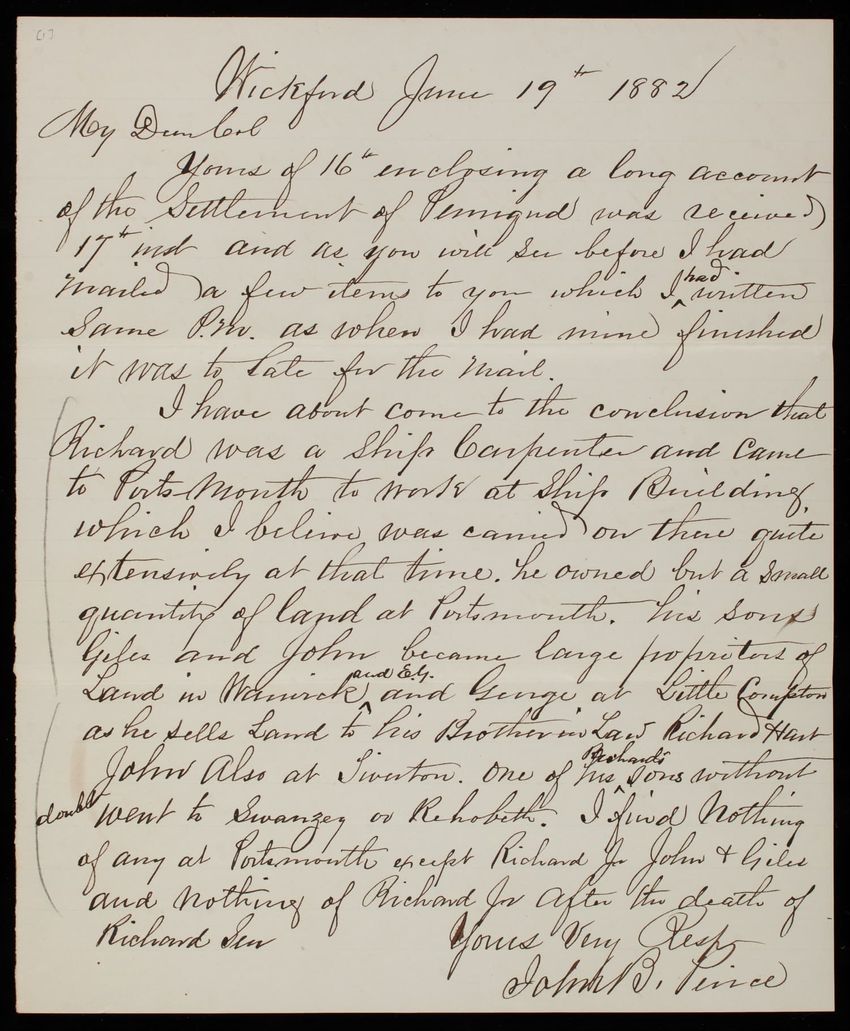 (1)
Wickford June 19th 1882
My Dear Col
Yours of 16th enclosing a long account
of the Settlement of Pemiquid was received
17th inst and as you will see before I had
mailed a few items to you which I had written
Same P.M. as when I had mine finished
it was to late for the mail.
I have about come to the conclusion that
Richard was a Ship Carpenter and came
to Ports-Mouth to work at Ship Building
which I belive was carried on there quite
extensively at that time. he owned but a small
quantity of land at Portsmouth. his sons
Giles and John became large propritors of
Land in Warwick and E.G. and George at Little Compton
as he sells Land to his Brother in Law Richard Hart
John Also at Tiverton. One of his Richards sons without
doubt went to Swanzey or Rehobeth. I find Nothing
of any at Portsmouth except Richard Jr John & Giles
and nothing of Richard Jr After the death of
Richard Sen Yours Very Resp
John B. Pierce